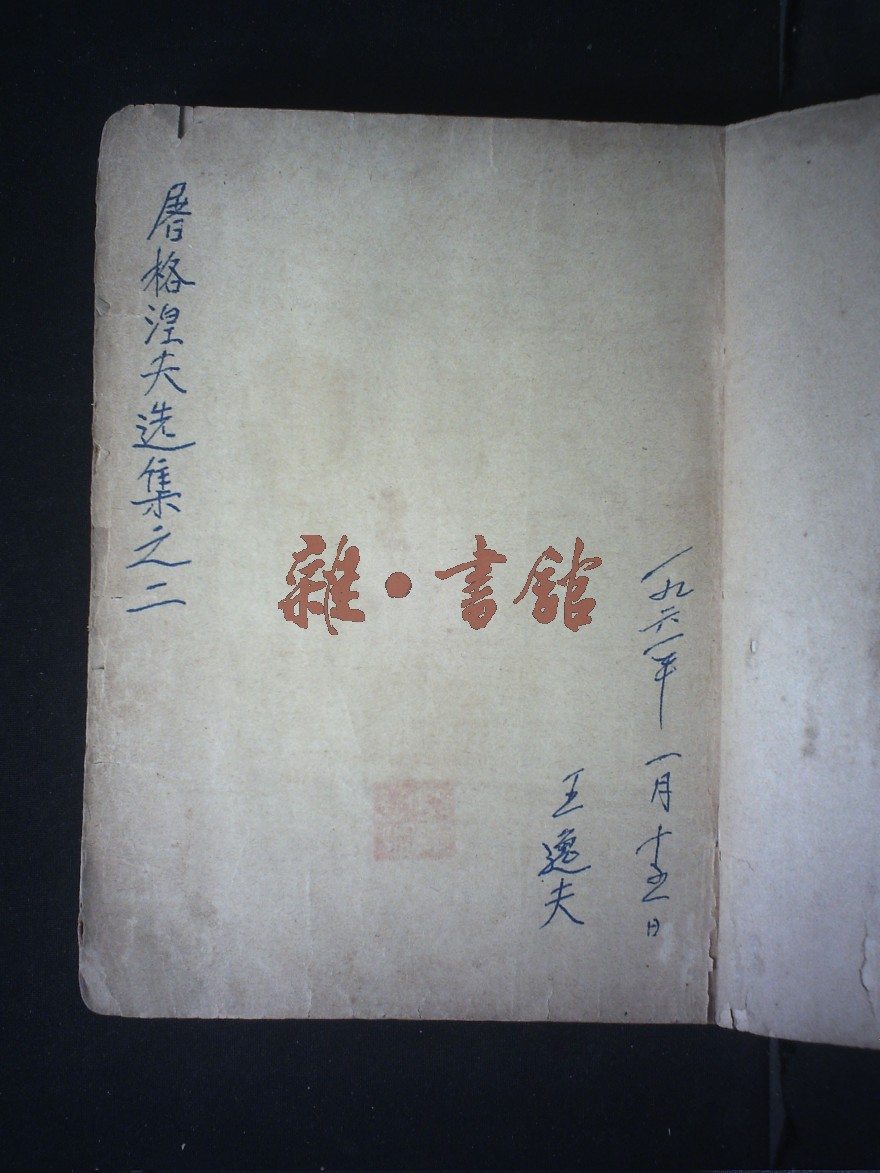 屠格涅夫选集之二
雜·書館
王逸夫
一九六一年一月十五日